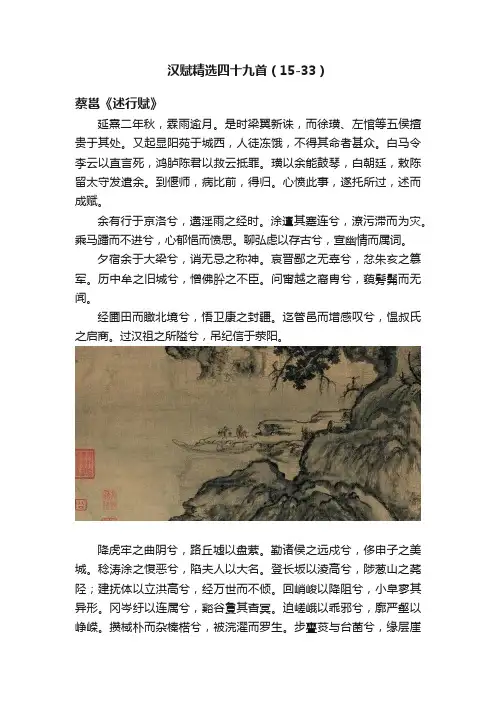 汉赋精选四十九首（15-33）
蔡邕《述行赋》
延熹二年秋，霖雨逾月。是时梁翼新诛，而徐璜、左悺等五侯擅
贵于其处。又起显阳苑于城西，人徒冻饿，不得其命者甚众。白马令
李云以直言死，鸿胪陈君以救云抵罪。璜以余能鼓琴，白朝廷，敕陈
留太守发遣余。到偃师，病比前，得归。心愤此事，遂托所过，述而
成赋。
余有行于京洛兮，遘淫雨之经时。涂邅其蹇连兮，潦污滞而为灾。
乘马蹯而不进兮，心郁悒而愤思。聊弘虑以存古兮，宣幽情而属词。
夕宿余于大梁兮，诮无忌之称神。哀晋鄙之无辜兮，忿朱亥之篡
军。历中牟之旧城兮，憎佛肸之不臣。问甯越之裔胄兮，藐髣髴而无
闻。
经圃田而瞰北境兮，悟卫康之封疆。迄管邑而增感叹兮，愠叔氏
之启商。过汉祖之所隘兮，吊纪信于荥阳。
降虎牢之曲阴兮，路丘墟以盘萦。勤诸侯之远戍兮，侈申子之美
城。稔涛涂之愎恶兮，陷夫人以大名。登长坂以淩高兮，陟葱山之荛
陉；建抚体以立洪高兮，经万世而不倾。回峭峻以降阻兮，小阜寥其
异形。冈岑纡以连属兮，谿谷夐其杳冥。迫嵯峨以乖邪兮，廓严壑以
峥嵘。攒棫朴而杂榛楛兮，被浣濯而罗生。步亹菼与台菌兮，缘层崖